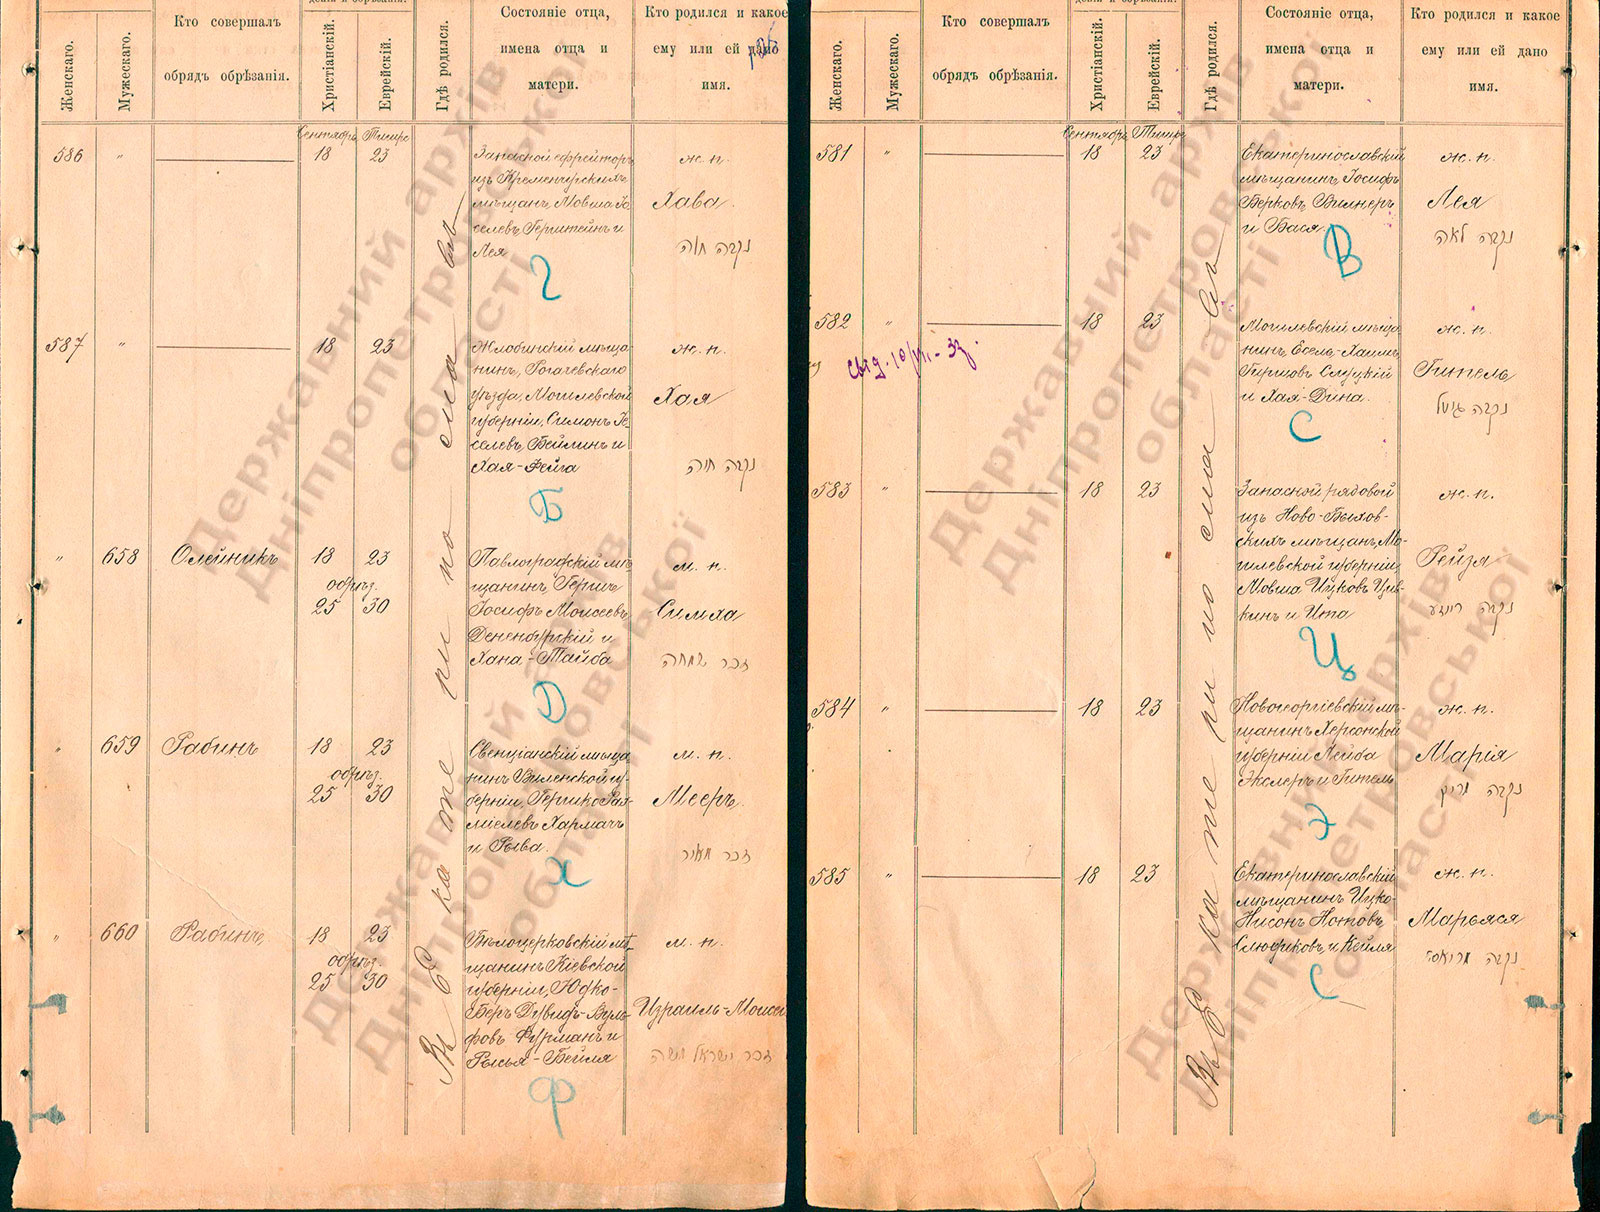 Женскаго.
Мужескаго.
Кто совершалъ
обрядъ обрѣзанія.
Христіанскій.
Еврейскій.
Гдѣ родился.
Состояніе отца,
имена отца и
матери.
Кто родился и какое
ему или ей дано
имя.
Сентябрь Тишре
586 " 18 23
Запасной ефрейторъ
изъ Кременчугскихъ
мѣщанъ, Мовша Іо-
селевъ Герштейнъ и
Лея
ж. п.
Хава.
נקבה חוה
Г
587 " 18 23
Жлобинскій мѣща-
нинъ, Рогачевскаго
уѣзда, Могилевской
губерніи, Симонъ Іо-
селевъ Бейлинъ и
Хая-Фейга
ж. п.
Хая
נקבה חיה
Б
" 658 Олейникъ 18 23
обрѣз.
25 30
Павлоградскій мѣ-
щанинъ, Гершъ
Іосифъ Моисеевъ
и
Хана-Тайба
м. п.
Симха
זכר שמחה
D
" 659 Рабинъ 18 23
обрѣз.
25 30
Свенцянскій мѣща-
нинъ Виленской гу-
берніи,
Хармацъ
и Рыва.
м. п.
Мееръ.
זכר מאיר
Х
" 660 Рабинъ 18 23
обрѣз.
25 30
Бѣлоцерковскій мѣ-
щанинъ Кіевской
губерніи, Юдко-
Беръ Дувидъ-Вуль-
фовъ Фурманъ и
Рысья-Бейля
м. п.
Израиль-Моисей
זכר ישראל משה
Ф
Въ Екатеринославѣ
Женскаго.
Мужескаго.
Кто совершалъ
обрядъ обрѣзанія.
Христіанскій.
Еврейскій.
Гдѣ родился.
Состояніе отца,
имена отца и
матери.
Кто родился и какое
ему или ей дано
имя.
Сентябрь Тишре
581 " 18 23
Екатеринославскій
мѣщанинъ, Іосифъ
Берковъ Вилнеръ
и Бася
ж. п.
Лея
נקבה לאה
В
582 " 18 23
Могилевскій мѣща-
нинъ, Есель-Хаимъ
Гиршовъ Слуцкій
и Хая-Дина.
ж. п.
Гитель
נקבה גיטל
С
583 " 18 23
Запасной рядовой
изъ Ново-Быхов-
скихъ мѣщанъ, Мо-
гилевской губерніи,
Мовша Ицковъ Цив-
кинъ и Ита
ж. п.
Рейзя
נקבה רייזע
Ц
584 " 18 23
Новогеоргіевскій мѣ-
щанинъ Херсонской
губерніи Лейба
Экслеръ и Гитель
ж. п.
Марія
Э
585 " 18 23
Екатеринославскій
мѣщанинъ Ицко-
Нисонъ Нотовъ
Слюфиковъ и Кейля
ж. п.
Марьяся
נקבה מריאסי
С
Въ Екатеринославѣ
Державний архів
Дніпропетровської
області